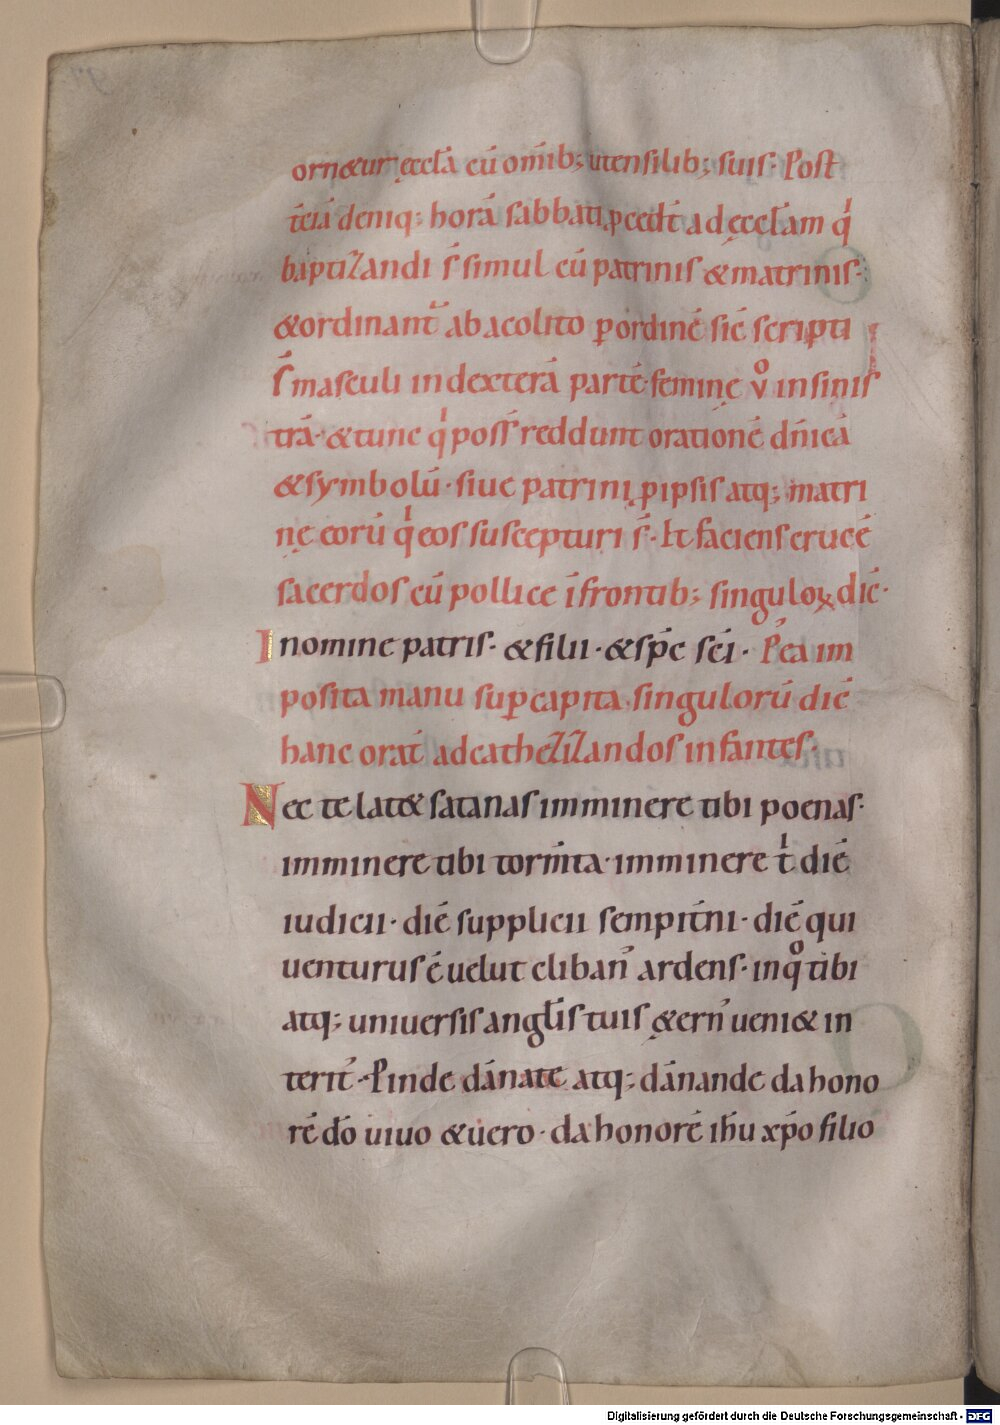 orn&ur ęccła cū om̄ib; utensilib; suis. Post
t̄ciā deniq; horā sabbati ꝓcedt̄ ad ęccłam q̇
baptizandi s̄ simul cū patrinis & matrinis.
& ordinant᷑ ab acolito ꝑ ordinē sic̄ scripti
s̄ masculi in dexterā partē. feminę v̊ in sinis
trā. & tunc q̇ poss̄ reddunt orationē dn̄icā
& symbolū. siue patrini ꝓ ipsis atq; matri
nę eorū q̇ eos suscepturi s̄. Et faciens crucē
sacerdos cū pollice ī frontib; singuloꝝ dic̄.
In nomine patris. & filii. & sp̄c sc̄i. P̄ea im
posita manu suꝑ capita singulorū dic̄
hanc orat̄ ad cathezizandos infantes.
Nec te lat& satanas imminere tibi poenas.
imminere tibi torm̄ta. imminere t̍ diē
iudicii. diē supplicii sempit̄ni. diē qui
uenturus ē uelut cliban᾿ ardens. in q̊ tibi
atq; uniuersis angłis tuis ęt̨ern᾿ ueni& in
terit᾿. Pinde dānate atq; dānande da hono
rē dō uiuo & uero. da honorē ih̄u xp̄o filio
Digitalisierung gefördert durch die Deutsche Forschungsgemeinschaft - DFG